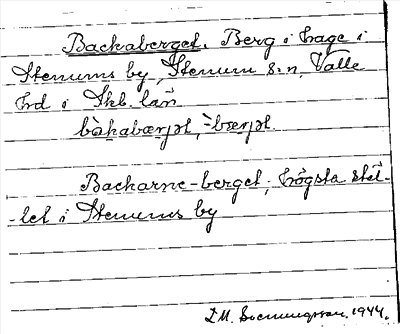 Backaberget. Berg i hage i
Stenums by, Stenum s:n, Valle
hd i Skb. län
bàkabærjət, -bærjət.
Backarne-berget, högsta stäl-
-let i Stenums by
1944.